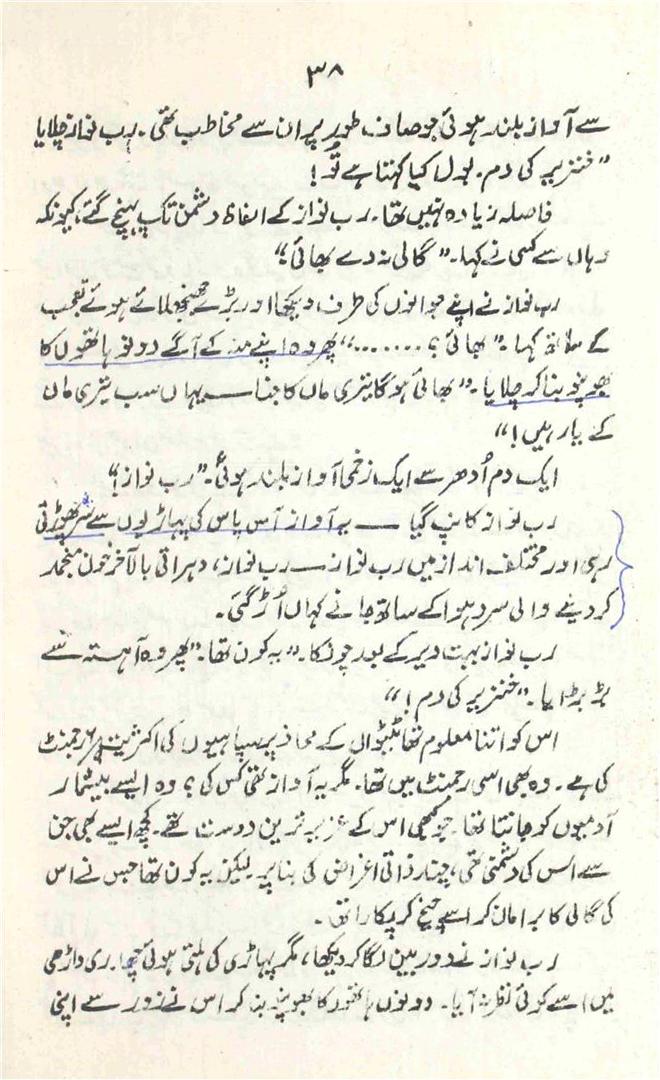 ۳۸
سے آواز بلند ہوئی جو صاف طور پر ان سے مخاطب تھی۔ رب نواز چلایا
"خنزیر کی دم۔ بول کیا کہتا ہے تُو!
فاصلہ زیادہ نہیں تھا۔ رب نواز کے الفاظ دشمن تک پہنچ گئے، کیونکہ
وہاں سے کسی نے کہا۔ "گالی نہ دے بھائی"
رب نواز نے اپنے جوانوں کی طرف دیکھا اور بڑے جھنجھلائے ہوئے تعجب
کے ساتھ کہا۔ "بھائی؟ ......." پھر وہ اپنے منہ کے آگے دونو ہاتھوں کا
بھونپو بنا کر چلایا۔ "بھائی ہو گا تیری ماں کا جنا — یہاں سب تیری ماں
کے یار ہیں!"
ایک دم اُدھر سے ایک زخمی آواز بلند ہوئی۔ "رب نواز!"
رب نواز کانپ گیا — یہ آواز آس پاس کی پہاڑیوں سے سر پھوڑتی
رہی اور مختلف انداز میں رب نواز — رب نواز، دہراتی بالآخر خون منجمد
کر دینے والی سرد ہوا کے ساتھ جانے کہاں اُڑ گئی۔
رب نواز بہت دیر کے بعد چونکا۔ "یہ کون تھا۔" پھر وہ آہستہ سے
بڑبڑایا۔ "خنزیر کی دم!"
اس کو اتنا معلوم تھا ٹیٹوال کے محاذ پر سپاہیوں کی اکثریت ۶/۹ رجمنٹ
کی ہے۔ وہ بھی اسی رجمنٹ میں تھا۔ مگر یہ آواز تھی کس کی؟ وہ ایسے بیشمار
آدمیوں کو جانتا تھا جو کبھی اس کے عزیز ترین دوست تھے۔ کچھ ایسے بھی جن
سے اس کی دشمنی تھی، چند ذاتی اغراض کی بنا پر۔ لیکن یہ کون تھا جس نے اس
کی گالی کا برا مان کر اسے چیخ کر پکارا تھا۔
رب نواز نے دوربین لگا کر دیکھا، مگر پہاڑی کی ہلتی ہوئی چھدری داڑھی
میں اسے کوئی نظر نہ آیا۔ دونوں ہاتھوں کا بھونپو بنا کر اس نے زور سے اپنی